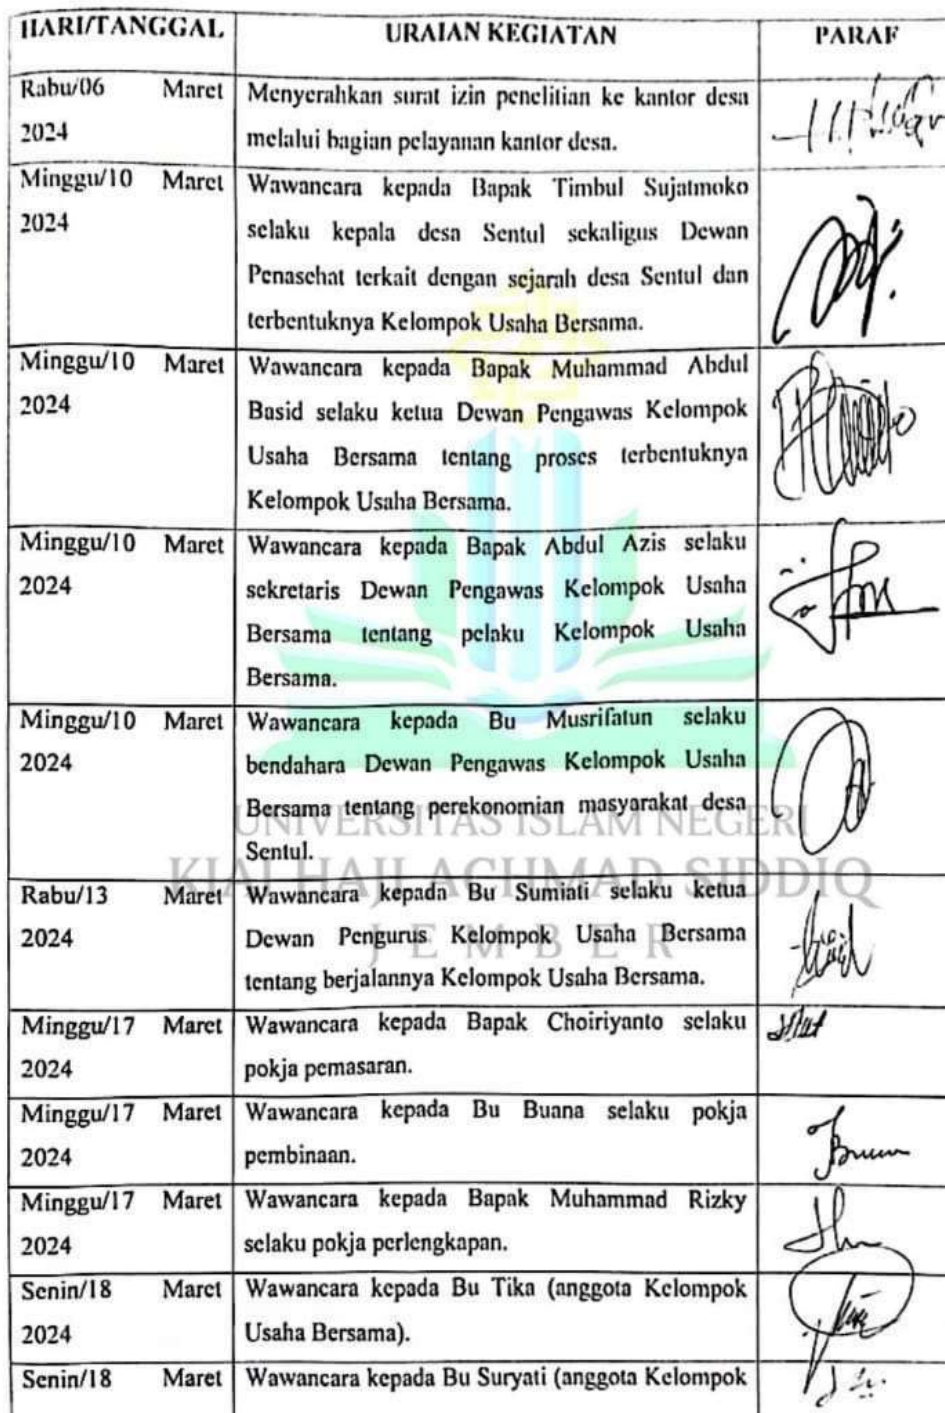 HARI/TANGGAL URAIAN KEGIATAN PARAF
Rabu/06 Maret 2024
Menyerahkan surat izin penelitian ke kantor desa
melalui bagian pelayanan kantor desa.
Minggu/10 Maret 2024
Wawancara kepada Bapak Timbul Sujatmoko
selaku kepala desa Sentul sekaligus Dewan
Penasehat terkait dengan sejarah desa Sentul dan
terbentuknya Kelompok Usaha Bersama.
Minggu/10 Maret 2024
Wawancara kepada Bapak Muhammad Abdul
Basid selaku ketua Dewan Pengawas Kelompok
Usaha Bersama tentang proses terbentuknya
Kelompok Usaha Bersama.
Minggu/10 Maret 2024
Wawancara kepada Bapak Abdul Azis selaku
sekretaris Dewan Pengawas Kelompok Usaha
Bersama tentang pelaku Kelompok Usaha
Bersama.
Minggu/10 Maret 2024
Wawancara kepada Bu Musrifatun selaku
bendahara Dewan Pengawas Kelompok Usaha
Bersama tentang perekonomian masyarakat desa
Sentul.
UNIVERSITAS ISLAM NEGERI
KIAI HAJI ACHMAD SIDDIQ
JEMBER
Rabu/13 Maret 2024
Wawancara kepada Bu Sumiati selaku ketua
Dewan Pengurus Kelompok Usaha Bersama
tentang berjalannya Kelompok Usaha Bersama.
Minggu/17 Maret 2024
Wawancara kepada Bapak Choiriyanto selaku
pokja pemasaran.
Minggu/17 Maret 2024
Wawancara kepada Bu Buana selaku pokja
pembinaan.
Minggu/17 Maret 2024
Wawancara kepada Bapak Muhammad Rizky
selaku pokja perlengkapan.
Senin/18 Maret 2024
Wawancara kepada Bu Tika (anggota Kelompok
Usaha Bersama).
Senin/18 Maret
Wawancara kepada Bu Suryati (anggota Kelompok